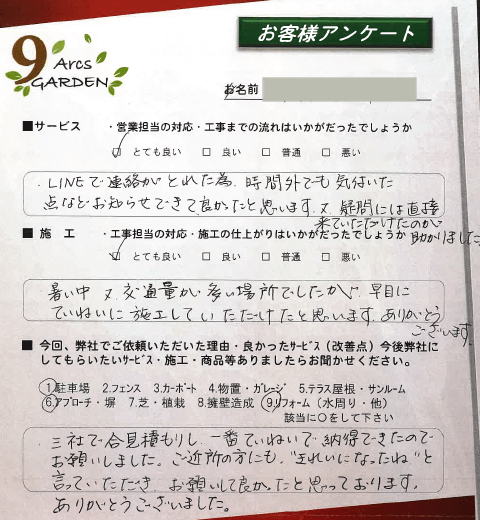 お客様アンケート
9 Arcs
GARDEN
お名前
■サービス ・営業担当の対応・工事までの流れはいかがだったでしょうか
☑ とても良い □ 良い □ 普通 □ 悪い
・LINEで連絡がとれた為、時間外でも気付いた
点などお知らせできて良かったと思います。又、疑問には直接
来ていただけたのが
助かりました。
■施 工 ・工事担当の対応・施工の仕上がりはいかがだったでしょうか
☑ とても良い □ 良い □ 普通 □ 悪い
暑い中、又、交通量が多い場所でしたが、早目に
ていねいに施工していただけたと思います。ありがとう
ございます。
■ 今回、弊社でご依頼いただいた理由・良かったサービス（改善点）今後弊社に
してもらいたいサービス・施工・商品等ありましたらお聞かせください。
①駐車場 2.フェンス 3.カーポート 4.物置・ガレージ 5.テラス屋根・サンルーム
⑥アプローチ・塀 7.芝・植栽 8.擁壁造成 ⑨リフォーム（水周り・他）
該当に○をして下さい
三社で合見積もりし、一番ていねいで納得できたので
お願いしました。ご近所の方にも、"きれいになったね"と
言っていただき、お願いして良かったと思っております。
ありがとうございました。